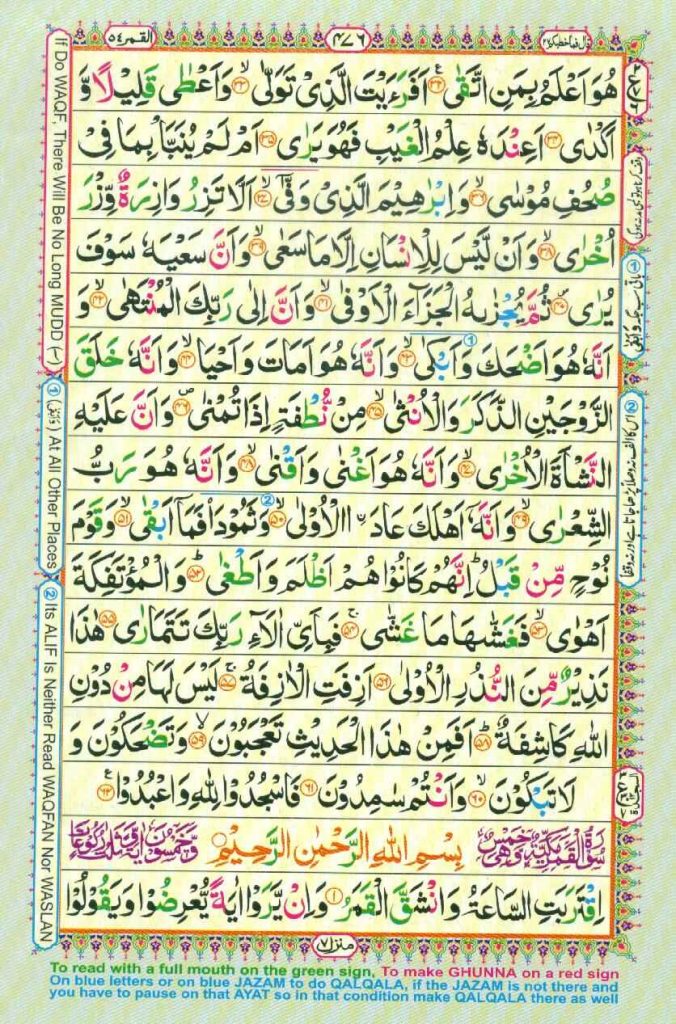 القمر ٥٤
٤٧٦
قال فما خطبكم ٢٧
هُوَ اَعْلَمُ بِمَنِ اتَّقٰی ﴿۳۲﴾ اَفَرَءَیْتَ الَّذِیْ تَوَلّٰی ﴿۳۳﴾ وَاَعْطٰی قَلِیْلًا وَّ
اَكْدٰی ﴿۳۴﴾ اَعِنْدَهٗ عِلْمُ الْغَیْبِ فَهُوَ یَرٰی ﴿۳۵﴾ اَمْ لَمْ یُنَبَّاْ بِمَا فِیْ
صُحُفِ مُوْسٰی ﴿۳۶﴾ وَاِبْرٰهِیْمَ الَّذِیْ وَفّٰۤی ﴿۳۷﴾ اَلَّا تَزِرُ وَازِرَةٌ وِّزْرَ
اُخْرٰی ﴿۳۸﴾ وَاَنْ لَّیْسَ لِلْاِنْسَانِ اِلَّا مَا سَعٰی ﴿۳۹﴾ وَاَنَّ سَعْیَهٗ سَوْفَ
یُرٰی ﴿۴۰﴾ ثُمَّ یُجْزٰىهُ الْجَزَآءَ الْاَوْفٰی ﴿۴۱﴾ وَاَنَّ اِلٰی رَبِّكَ الْمُنْتَهٰی ﴿۴۲﴾ وَ
اَنَّهٗ هُوَ اَضْحَكَ وَاَبْكٰی ﴿۴۳﴾ وَاَنَّهٗ هُوَ اَمَاتَ وَاَحْیَا ﴿۴۴﴾ وَاَنَّهٗ خَلَقَ
الزَّوْجَیْنِ الذَّكَرَ وَالْاُنْثٰی ﴿۴۵﴾ مِنْ نُّطْفَةٍ اِذَا تُمْنٰی ﴿۴۶﴾ وَاَنَّ عَلَیْهِ
النَّشْاَةَ الْاُخْرٰی ﴿۴۷﴾ وَاَنَّهٗ هُوَ اَغْنٰی وَاَقْنٰی ﴿۴۸﴾ وَاَنَّهٗ هُوَ رَبُّ
الشِّعْرٰی ﴿۴۹﴾ وَاَنَّهٗۤ اَهْلَكَ عَادَ ۨ الْاُوْلٰی ﴿۵۰﴾ وَثَمُوْدَا۟ فَمَاۤ اَبْقٰی ﴿۵۱﴾ وَقَوْمَ
نُوْحٍ مِّنْ قَبْلُ ؕ اِنَّهُمْ كَانُوْا هُمْ اَظْلَمَ وَاَطْغٰی ﴿۵۲﴾ وَالْمُؤْتَفِكَةَ
اَهْوٰی ﴿۵۳﴾ فَغَشّٰىهَا مَا غَشّٰی ﴿۵۴﴾ فَبِاَیِّ اٰلَآءِ رَبِّكَ تَتَمَارٰی ﴿۵۵﴾ هٰذَا
نَذِیْرٌ مِّنَ النُّذُرِ الْاُوْلٰی ﴿۵۶﴾ اَزِفَتِ الْاٰزِفَةُ ﴿۵۷﴾ لَیْسَ لَهَا مِنْ دُوْنِ
اللّٰهِ كَاشِفَةٌ ﴿۵۸﴾ اَفَمِنْ هٰذَا الْحَدِیْثِ تَعْجَبُوْنَ ﴿۵۹﴾ وَتَضْحَكُوْنَ وَ
لَا تَبْكُوْنَ ﴿۶۰﴾ وَاَنْتُمْ سٰمِدُوْنَ ﴿۶۱﴾ فَاسْجُدُوْا لِلّٰهِ وَاعْبُدُوْا ﴿۶۲﴾
سُوْرَةُ الْقَمَرِ مَكِّیَّةٌ وَّهِیَ خَمْسٌ
بِسْمِ اللّٰهِ الرَّحْمٰنِ الرَّحِیْمِ
وَّخَمْسُوْنَ اٰیَةً وَّثَلٰثُ رُكُوْعَاتٍ
اِقْتَرَبَتِ السَّاعَةُ وَانْشَقَّ الْقَمَرُ ﴿۱﴾ وَاِنْ یَّرَوْا اٰیَةً یُّعْرِضُوْا وَیَقُوْلُوْا
منزل ٧
If Do WAQF, There Will Be No Long MUDD (~)
① At All Other Places
② Its ALIF Is Neither Read WAQFAN Nor WASLAN
To read with a full mouth on the green sign, To make GHUNNA on a red sign
On blue letters or on blue JAZAM to do QALQALA, if the JAZAM is not there and
you have to pause on that AYAT so in that condition make QALQALA there as well